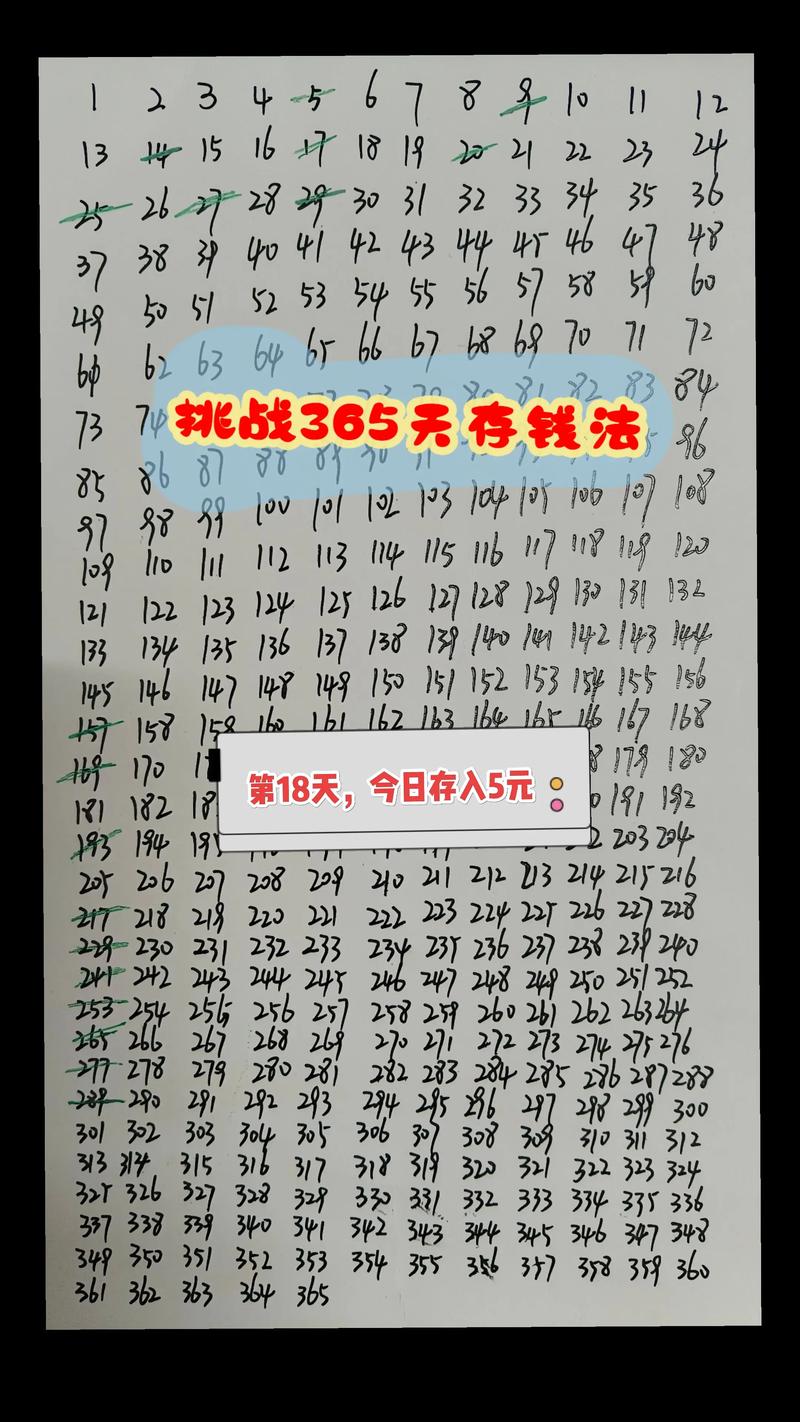 1 2 3 4 5 6 7 8 9 10 11 12
13 14 15 16 17 18 19 20 21 22 23 24
25 26 27 28 29 30 31 32 33 34 35 36
37 38 39 40 41 42 43 44 45 46 47 48
49 50 51 52 53 54 55 56 57 58 59 60
60 62 63 64 65 66 67 68 69 70 71 72
73 74 80 81 82 83 84
挑战365天存钱法
85 86 87 88 89 90 91 96
97 98 99 100 101 102 103 104 105 106 107 108
109 110 111 112 113 114 115 116 117 118 119 120
121 122 123 124 125 126 127 128 129 130 131 132
133 134 135 136 137 138 139 140 141 142 143 144
145 146 147 148 149 150 151 152 153 154 155 156
157 158 159 160 161 162 163 164 165 166 167 168
169 170 179 180
第18天，今日存入5元
181 182 191 192
193 194 203 204
205 206 207 208 209 210 211 212 213 214 215 216
217 218 219 220 221 222 223 224 225 226 227 228
229 230 231 232 233 234 235 236 237 238 239 240
241 242 243 244 245 246 247 248 249 250 251 252
253 254 256 256 257 258 259 260 261 262 263 264
265 266 267 268 269 270 271 272 273 274 275 276
277 278 279 280 281 282 283 284 285 286 287 288
289 290 291 292 293 294 295 296 297 298 299 300
301 302 303 304 305 306 307 308 309 310 311 312
313 314 315 316 317 318 319 320 321 322 323 324
325 326 327 328 329 330 331 332 333 334 335 336
337 338 339 340 341 342 343 344 345 346 347 348
349 350 351 352 353 354 355 356 357 358 359 360
361 362 363 364 365